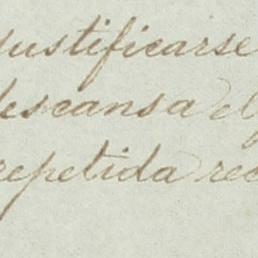 justificarse
descansa el
repetida rec